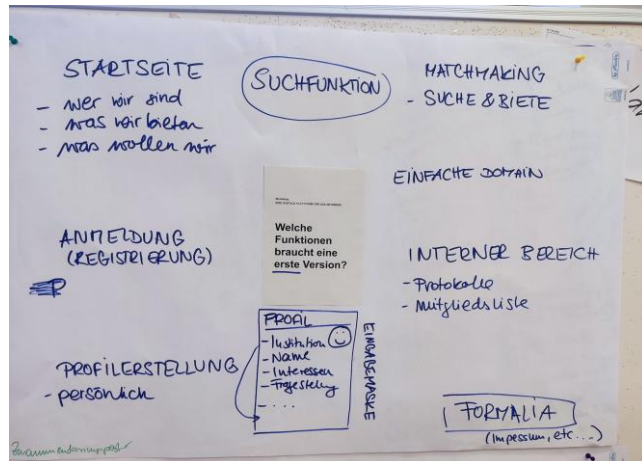 STARTSEITE
- wer wir sind
- was wir bieten
- was wollen wir
SUCHFUNKTION
MATCHMAKING
- SUCHE & BIETE
EINFACHE DOMAIN
Welche
Funktionen
braucht eine
erste Version?
ANMELDUNG
(REGISTRIERUNG)
INTERNER BEREICH
- Protokolle
- Mitgliedsliste
PROFILERSTELLUNG
- persönlich
PROFIL
- Institution
- Name
- Interessen
- Fragestellung
- ...
EINGABEMASKE
FORMALIA
(Impressum, etc...)